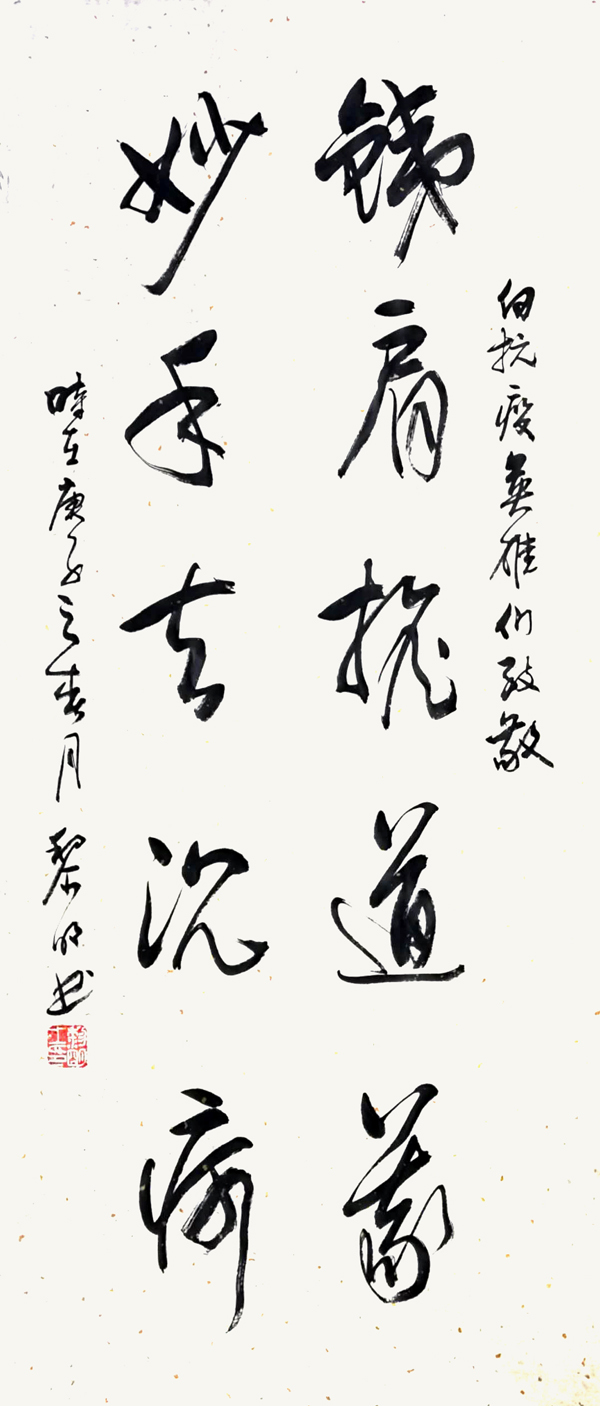 向抗疫英雄们致敬
铁肩担道义
妙手去沉疴
時在庚子之春月 黎明书